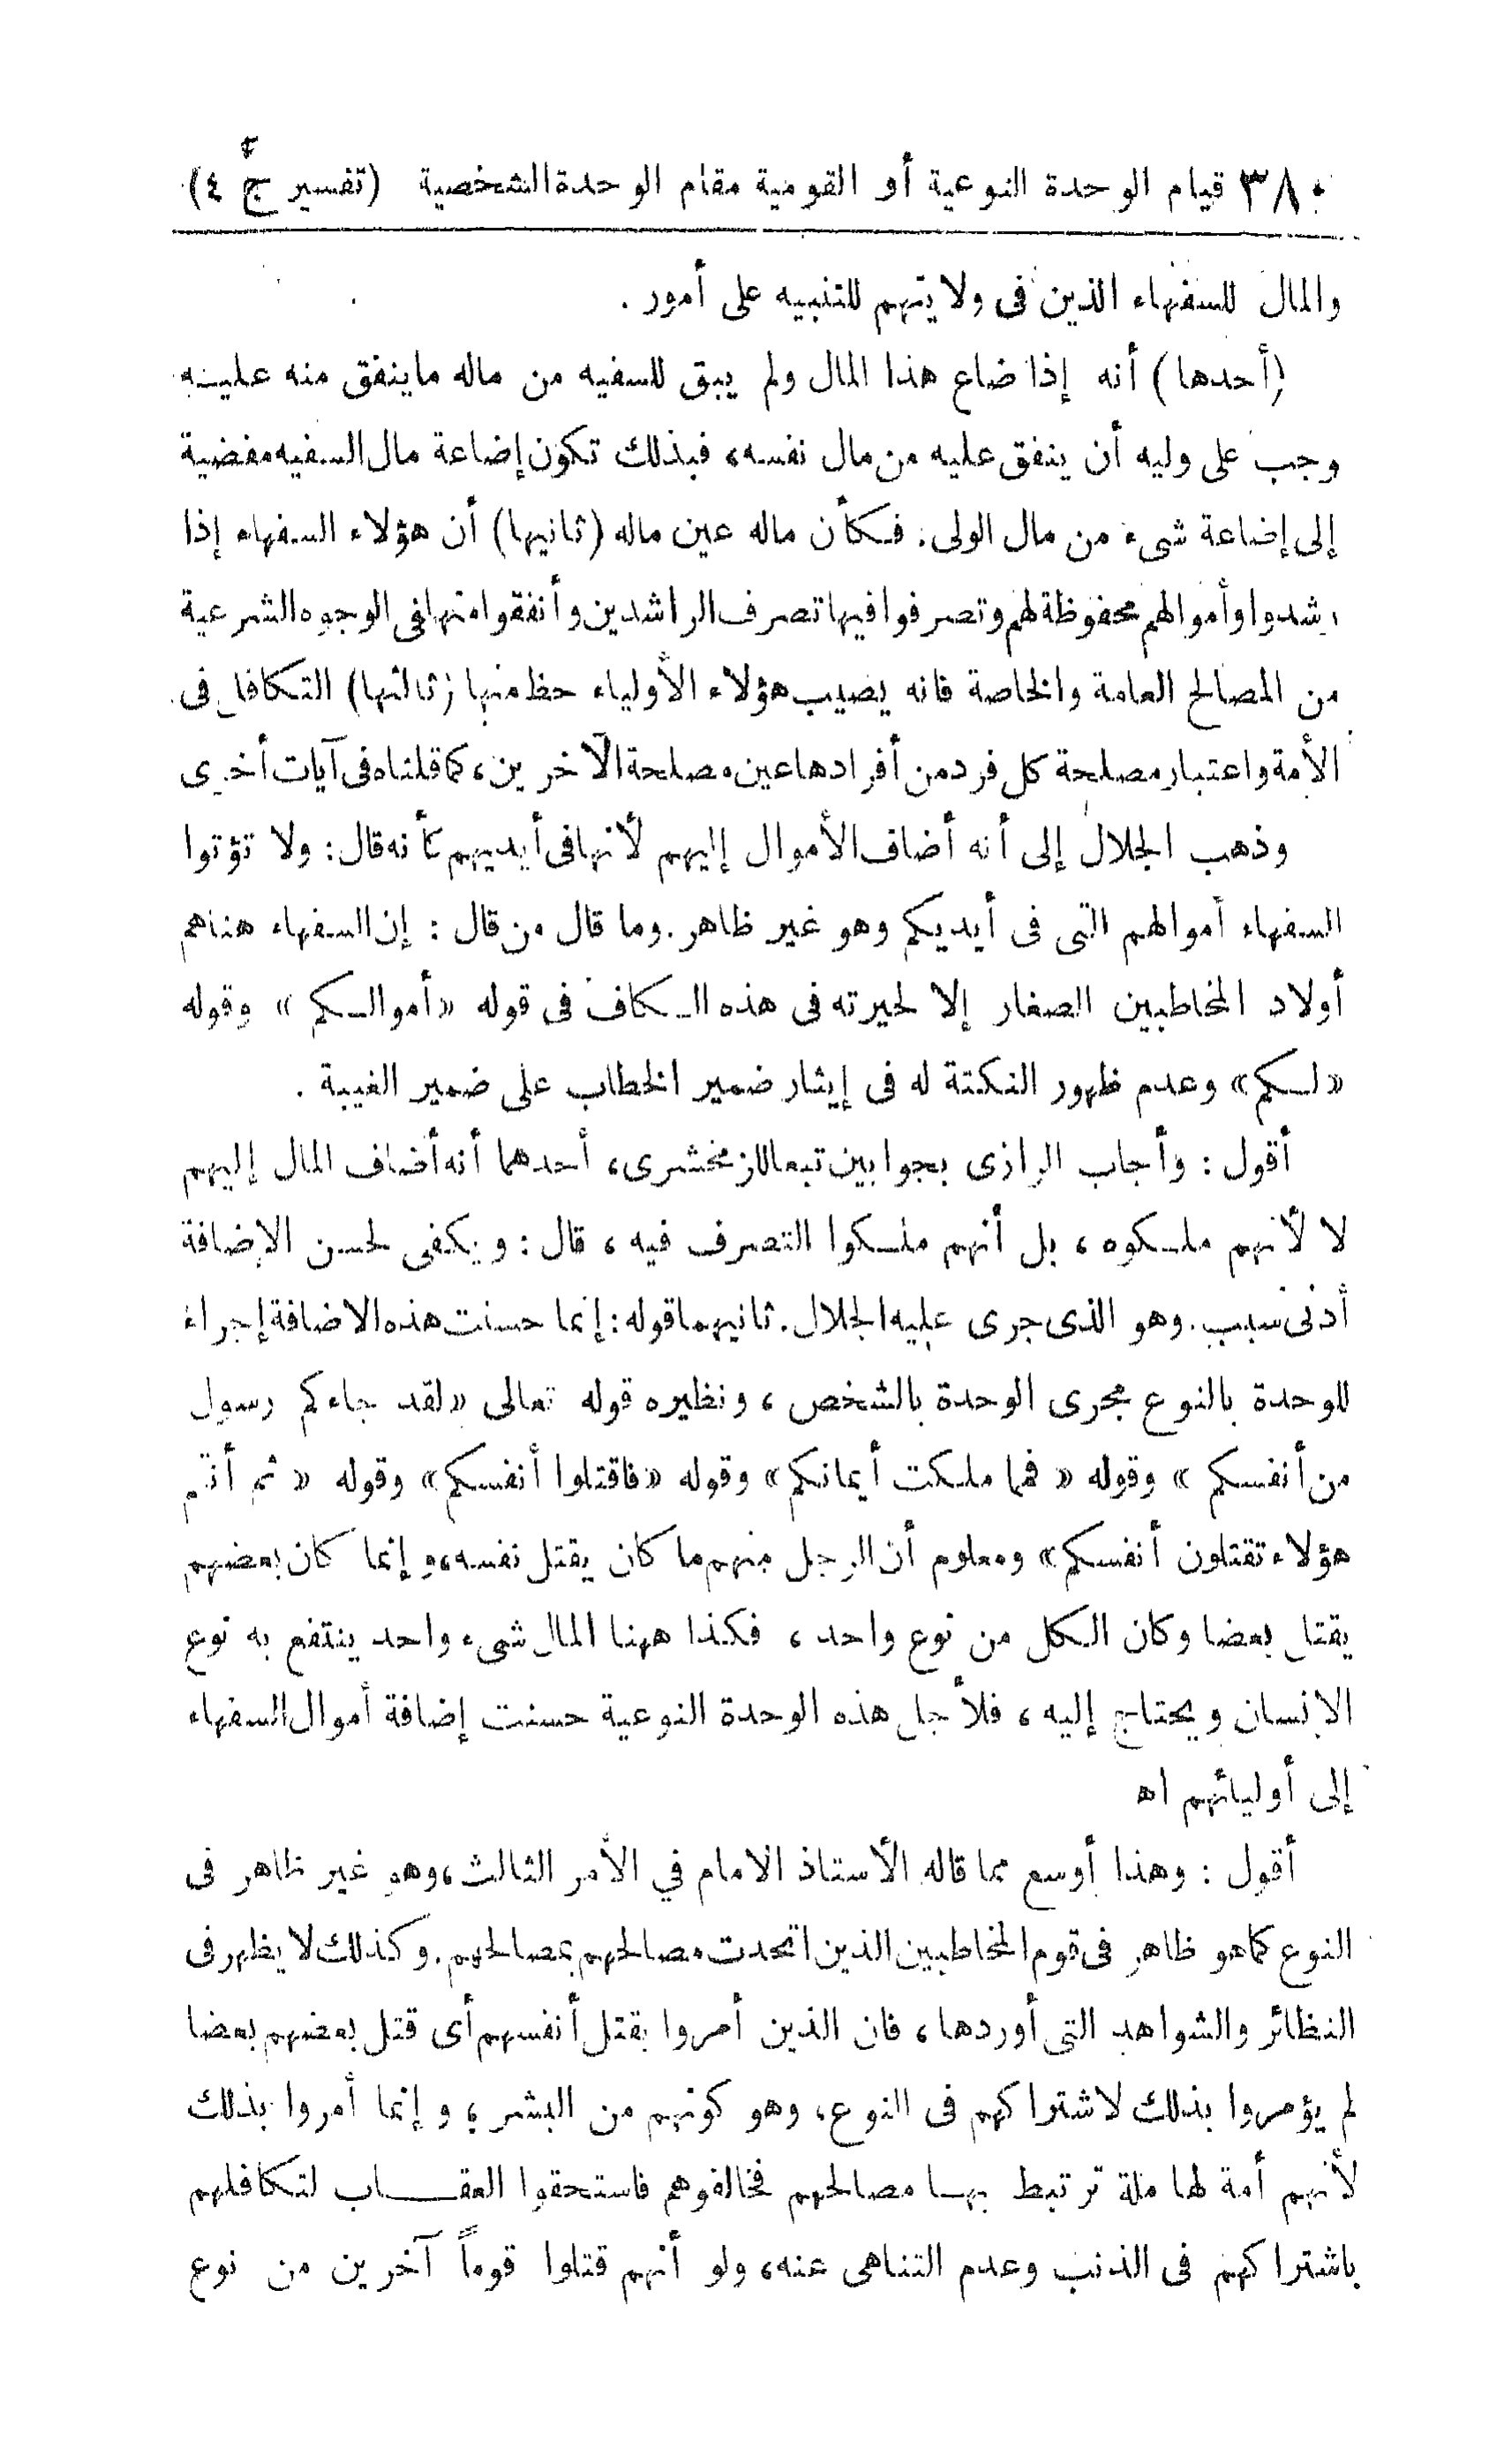 ٣٨٠ قيام الوحدة النوعية أو القومية مقام الوحدة الشخصية (تفسير ج ٤)
والمال للسفهاء الذين فى ولايتهم للتنبيه على أمور .
(أحدها) أنه إذا ضاع هذا المال ولم يبق للسفيه من ماله ماينفق منه عليه
وجب على وليه أن ينفق عليه من مال نفسه، فبذلك تكون إضاعة مال السفيه مفضية
إلى إضاعة شىء من مال الولى . فكأن ماله عين ماله (ثانيها) أن هؤلاء السفهاء إذا
رشدوا وأموالهم محفوظة لهم وتصرفوا فيها تصرف الراشدين وأنفقوا منها فى الوجوه الشرعية
من المصالح العامة والخاصة فانه يصيب هؤلاء الأولياء حظ منها (ثالثها) التكافل فى
الأمة واعتبار مصلحة كل فرد من أفرادها عين مصلحة الآخرين، كما قلناه فى آيات أخرى
وذهب الجلال إلى أنه أضاف الأموال إليهم لأنها فى أيديهم كأنه قال : ولا تؤتوا
السفهاء أموالهم التى فى أيديكم وهو غير ظاهر . وما قال من قال : إن السفهاء هنا هم
أولاد المخاطبين الصغار إلا لحيرته فى هذه الكاف فى قوله «أموالكم» وقوله
«لكم» وعدم ظهور النكتة له فى إيثار ضمير الخطاب على ضمير الغيبة .
أقول : وأجاب الرازى بجوابين تبعا للزمخشرى، أحدهما أنه أضاف المال إليهم
لا لأنهم ملكوه ، بل أنهم ملكوا التصرف فيه ، قال : ويكفى لحسن الإضافة
أدنى سبب . وهو الذى جرى عليه الجلال . ثانيهما قوله : إنما حسنت هذه الاضافة إجراء
للوحدة بالنوع مجرى الوحدة بالشخص ، ونظيره قوله تعالى «لقد جاءكم رسول
من أنفسكم » وقوله « فما ملكت أيمانكم» وقوله «فاقتلوا أنفسكم» وقوله « ثم أنتم
هؤلاء تقتلون أنفسكم» ومعلوم أن الرجل منهم ما كان يقتل نفسه، وإنما كان بعضهم
يقتل بعضا وكان الكل من نوع واحد ، فكذا ههنا المال شىء واحد ينتفع به نوع
الانسان ويحتاج إليه ، فلأجل هذه الوحدة النوعية حسنت إضافة أموال السفهاء
إلى أوليائهم اه
أقول : وهذا أوسع مما قاله الأستاذ الامام في الأمر الثالث ، وهو غير ظاهر فى
النوع كما هو ظاهر فى قوم المخاطبين الذين اتحدت مصالحهم بمصالحهم . وكذلك لا يظهر فى
النظائر والشواهد التى أوردها ، فان الذين أمروا بقتل أنفسهم أى قتل بعضهم بعضا
لم يؤمروا بذلك لاشتراكهم فى النوع ، وهو كونهم من البشر ، وإنما أمروا بذلك
لأنهم أمة لها ملة ترتبط بها مصالحهم فخالفوهم فاستحقوا العقاب لتكافلهم
باشتراكهم فى الذنب وعدم التناهى عنه، ولو أنهم قتلوا قوماً آخرين من نوع